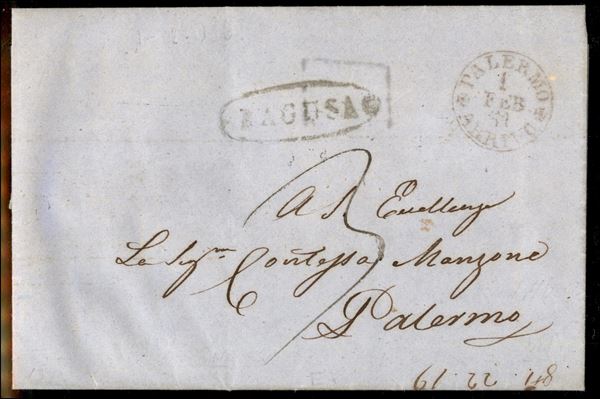 RAGUSA
PALERMO
1
FEB
ARRIVO
3
A S. Eccellenza
La Sigra Contessa Manzone
Palermo
61 22 48